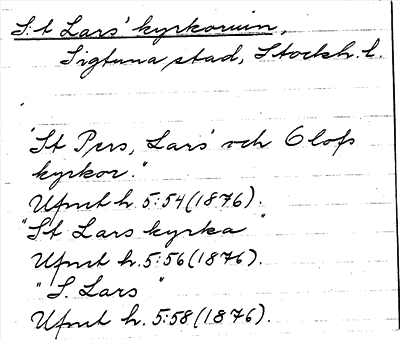 S:t Lars' kyrkoruin,
Sigtuna stad, Stockh. l.
"St Pers, Lars' och Olofs
kyrkor."
Ufmt h. 5:54 (1876).
"St Lars kyrka"
Ufmt h. 5:56 (1876).
"S. Lars"
Ufmt h. 5:58 (1876).